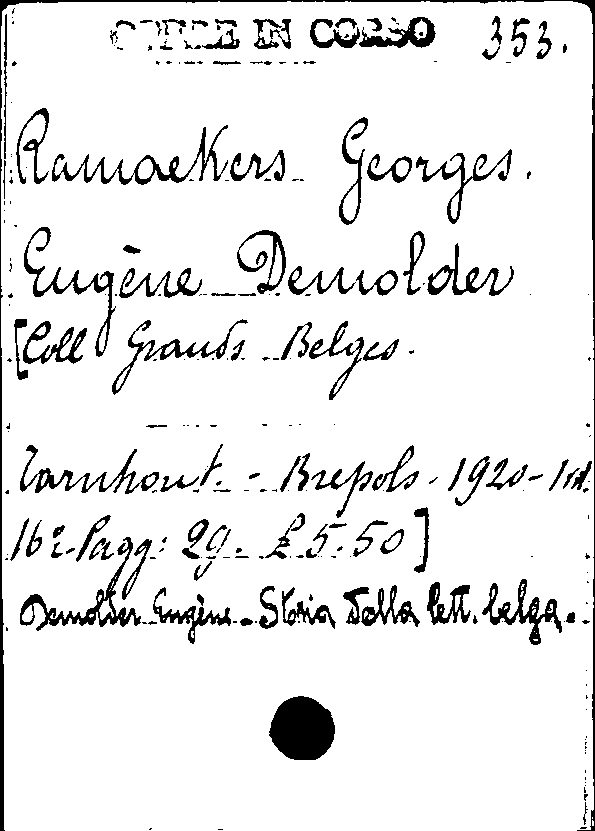 OPERE IN CORSO 353.
Ramaekers Georges.
Eugène Demolder
[Coll Grands Belges.
Tarnhout. - Brepols - 1920 -
16º - Pagg: 29. £ 5.50]
Demolder Eugène - Storia della lett. belga.